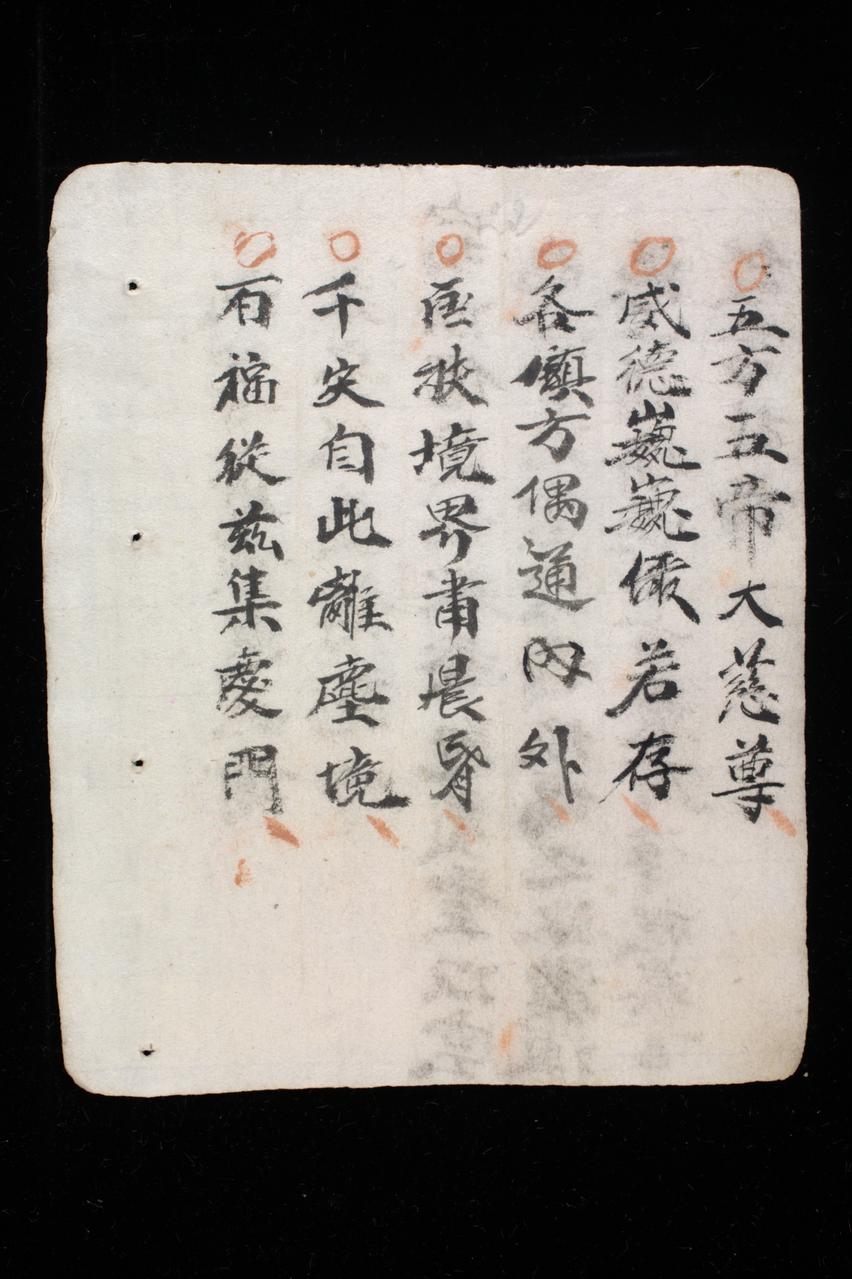 五方五帝大慈尊
威德巍巍儼若存
各鎮方偶通內外
匡扶境界肅晨昏
千灾自此離塵境
百福從茲集慶門